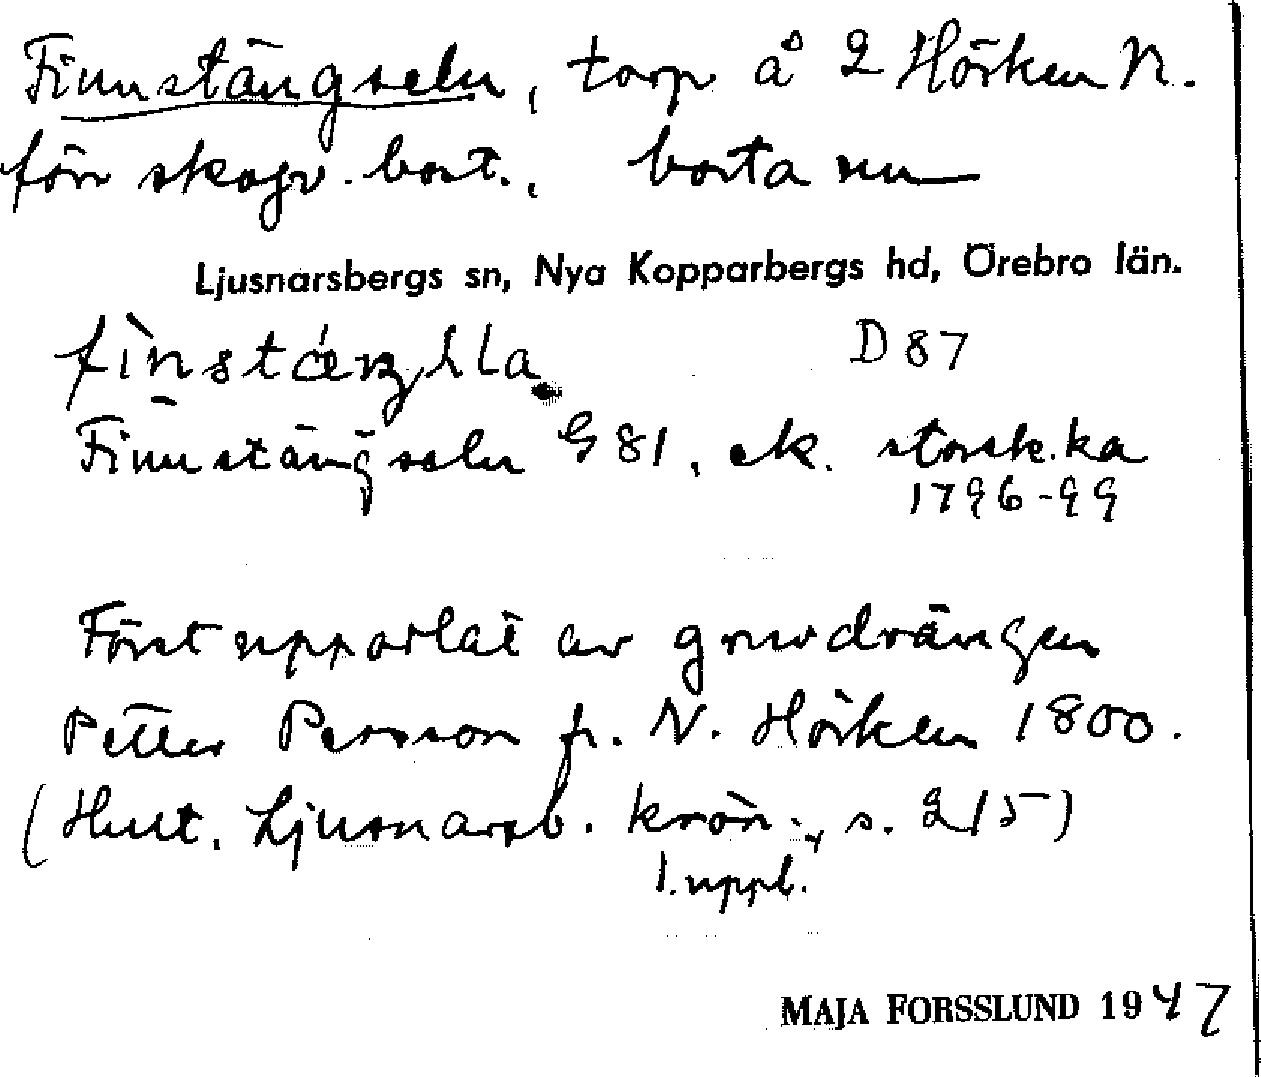 Finnstängseln, torp å 2 Hörken N.
förr skogv. bost., borta nu
Ljusnarsbergs sn, Nya Kopparbergs hd, Örebro län.
D 87
Finnstängseln G 81, ek. storsk.ka
1796-99
Först upparlat av gruvdrängen
Petter Persson fr. N. Hörken 1800.
(Hult. Ljusnarsb. krön., s. 215)
1. uppl.
MAJA FORSSLUND 1947